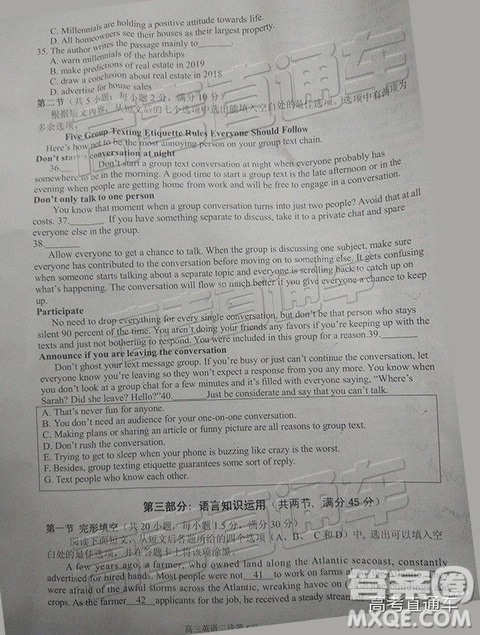 C. Millennials are holding a positive attitude towards life.
D. All homeowners see their houses as their largest property.
35. The author writes the passage mainly to
A. warn millennials of the hardships
B. make predictions of real estate in 2019
C. draw a conclusion about real estate in 2018
D. advertise for house sales
第二节 (共5小题;每小题2分,满分10分)
根据短文内容,从短文后的七个选项中选出能填入空白处的最佳选项。选项中有两项为
多余选项。
Five Group Texting Etiquette Rules Everyone Should Follow
Here's how not to be the most annoying person on your group text chain.
Don't start a conversation at night
36.____ Don't start a group text conversation at night when everyone probably has
somewhere to be in the morning. A good time to start a group text is the late afternoon or in the
evening when people are getting home from work and will be free to engage in a conversation.
Don't only talk to one person
You know that moment when a group conversation turns into just two people? Avoid that at all
costs. 37.____ If you have something separate to discuss, take it to a private chat and spare
everyone else in the group.
38.____
Allow everyone to get a chance to talk. When the group is discussing one subject, make sure
everyone has contributed to the conversation before moving on to something else. It gets confusing
when someone starts talking about a separate topic and everyone is scrolling back to catch up on
what's happening. The conversation will flow so much better if you give everyone a chance to
participate.
Participate
No need to drop everything for every single conversation, but don't be that person who stays
silent 90 percent of the time. You aren't doing your friends any favors if you're keeping up with the
texts and just not bothering to respond. You were included in this group for a reason.39.____
Announce if you are leaving the conversation
Don't ghost your text message group. If you're busy or just can't continue the conversation, let
everyone know you're leaving so they won't expect a response from you any more. You know when
you don't look at a group chat for a few minutes and it's filled with everyone saying, "Where's
Sarah? Did she leave? Hello?"40.____ Just be considerate and say that you can't talk.
A. That's never fun for anyone.
B. You don't need an audience for your one-on-one conversation.
C. Making plans or sharing an article or funny picture are all good reasons.
D. Don't rush the conversation.
E. Trying to get to sleep when your phone is buzzing like crazy is the worst.
F. Besides, group texting etiquette guarantees some sort of reply.
G. Text other people who know each other.
第三部分:语言知识运用 (共两节,满分45分)
第一节 完形填空 (共20小题,每小题1.5分,满分30分)
阅读下面短文,从短文后各题所给的四个选项 (A、B、C和D) 中,选出可以填入空
白处的最佳选项,并在答题卡上将该项涂黑。
A few years ago, a farmer, who owned land along the Atlantic seacoast, constantly
advertised for hired hands. Most people were not 41 to work on farms
were afraid of the awful storms across the Atlantic, wreaking havoc on
crops. As the farmer 42 applicants for the job, he received a steady stream
高三英语二诊第
高考直通车
答案圈